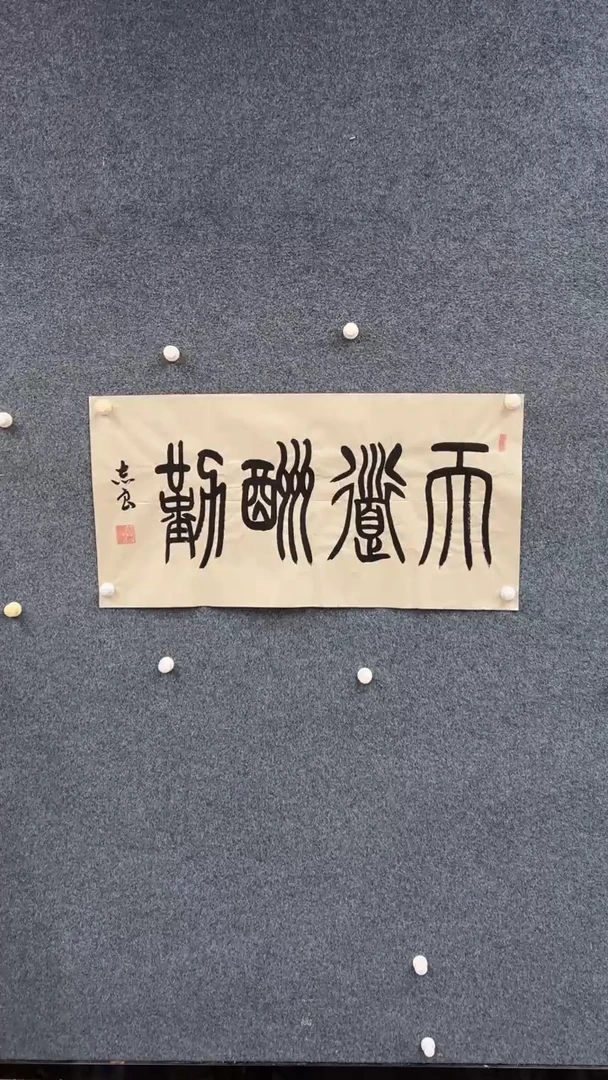 天道酬勤
志云